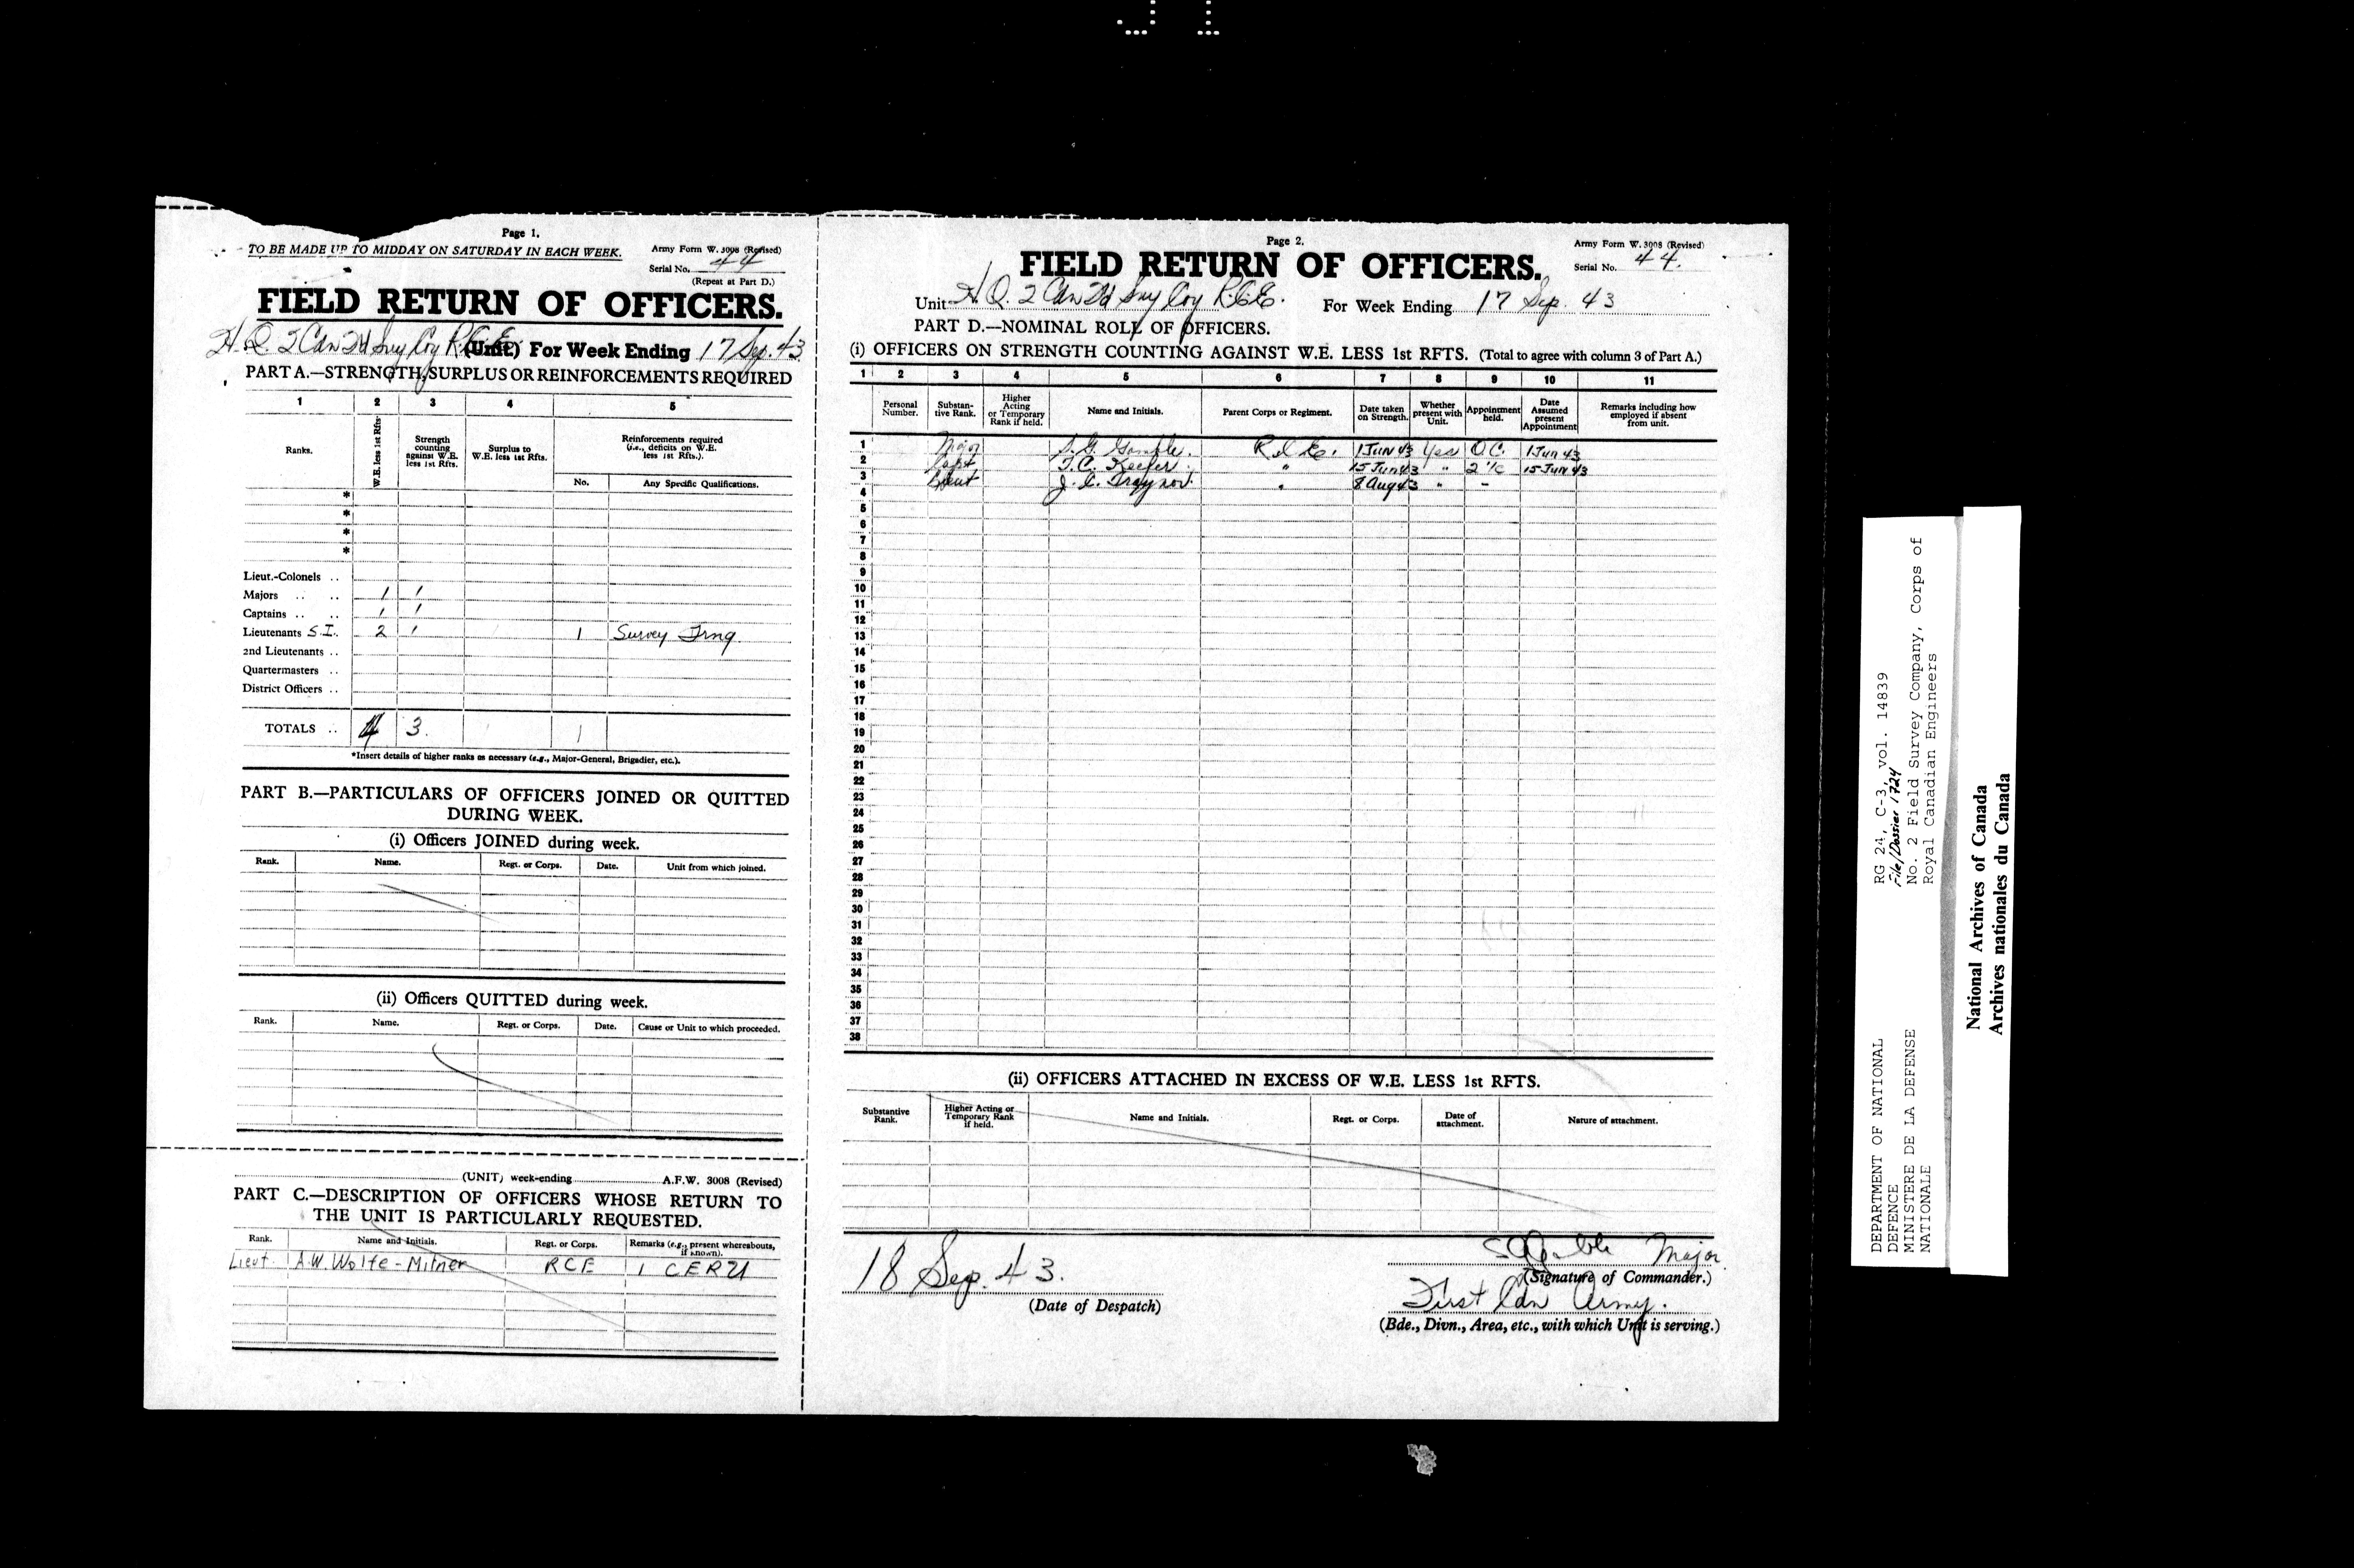 Page 1.
TO BE MADE UP TO MIDDAY ON SATURDAY IN EACH WEEK.
Army Form W. 3008 (Revised)
Serial No. 44
(Repeat at Part D.)
FIELD RETURN OF OFFICERS.
H.Q. 2 Cdn Fd Svy Coy R.C.E. (Unit.) For Week Ending 17 Sep. 43
PART A.—STRENGTH, SURPLUS OR REINFORCEMENTS REQUIRED
1 2 3 4 5
Ranks. W.E. less 1st Rfts. Strength counting against W.E. less 1st Rfts. Surplus to W.E. less 1st Rfts. Reinforcements required (i.e., deficits on W.E. less 1st Rfts.).
No. Any Specific Qualifications.
*
*
*
*
Lieut.-Colonels ..
Majors .. .. 1 1
Captains .. .. 1 1
Lieutenants S.I. .. 2 1 1 Survey Trng.
2nd Lieutenants ..
Quartermasters ..
District Officers ..
TOTALS .. 4 3. 1
*Insert details of higher ranks as necessary (e.g., Major-General, Brigadier, etc.).
PART B.—PARTICULARS OF OFFICERS JOINED OR QUITTED
DURING WEEK.
(i) Officers JOINED during week.
Rank. Name. Regt. or Corps. Date. Unit from which joined.
(ii) Officers QUITTED during week.
Rank. Name. Regt. or Corps. Date. Cause or Unit to which proceeded.
(UNIT) week-ending A.F.W. 3008 (Revised)
PART C.—DESCRIPTION OF OFFICERS WHOSE RETURN TO
THE UNIT IS PARTICULARLY REQUESTED.
Rank. Name and Initials. Regt. or Corps. Remarks (e.g., present whereabouts, if known).
Lieut. A.W. Wolfe-Milner RCE 1 CERU
Page 2.
Army Form W. 3008 (Revised)
Serial No. 44.
FIELD RETURN OF OFFICERS.
Unit H.Q. 2 Cdn Fd Svy Coy R.C.E. For Week Ending 17 Sep. 43
PART D.—NOMINAL ROLL OF OFFICERS.
(i) OFFICERS ON STRENGTH COUNTING AGAINST W.E. LESS 1st RFTS. (Total to agree with column 3 of Part A.)
1 2 3 4 5 6 7 8 9 10 11
Personal Number. Substantive Rank. Higher Acting or Temporary Rank if held. Name and Initials. Parent Corps or Regiment. Date taken on Strength. Whether present with Unit. Appointment held. Date Assumed present Appointment Remarks including how employed if absent from unit.
1 Major S.G. Gamble. R.C.E. 1 Jun 43 Yes O.C. 1 Jun 43
2 Capt T.C. Keefer. " 15 Jun 43 " 2 i/c 15 Jun 43
3 Lieut J.C. Traynor. " 8 Aug 43 " -
4
5
6
7
8
9
10
11
12
13
14
15
16
17
18
19
20
21
22
23
24
25
26
27
28
29
30
31
32
33
34
35
36
37
38
(ii) OFFICERS ATTACHED IN EXCESS OF W.E. LESS 1st RFTS.
Substantive Rank. Higher Acting or Temporary Rank if held. Name and Initials. Regt. or Corps. Date of attachment. Nature of attachment.
18 Sep. 43.
(Date of Despatch)
SGGamble Major.
(Signature of Commander.)
First Cdn Army.
(Bde., Divn., Area, etc., with which Unit is serving.)
DEPARTMENT OF NATIONAL
DEFENCE
MINISTERE DE LA DEFENSE
NATIONALE
RG 24, C-3, vol. 14839
File/Dossier 1724
No. 2 Field Survey Company, Corps of
Royal Canadian Engineers
National Archives of Canada
Archives nationales du Canada